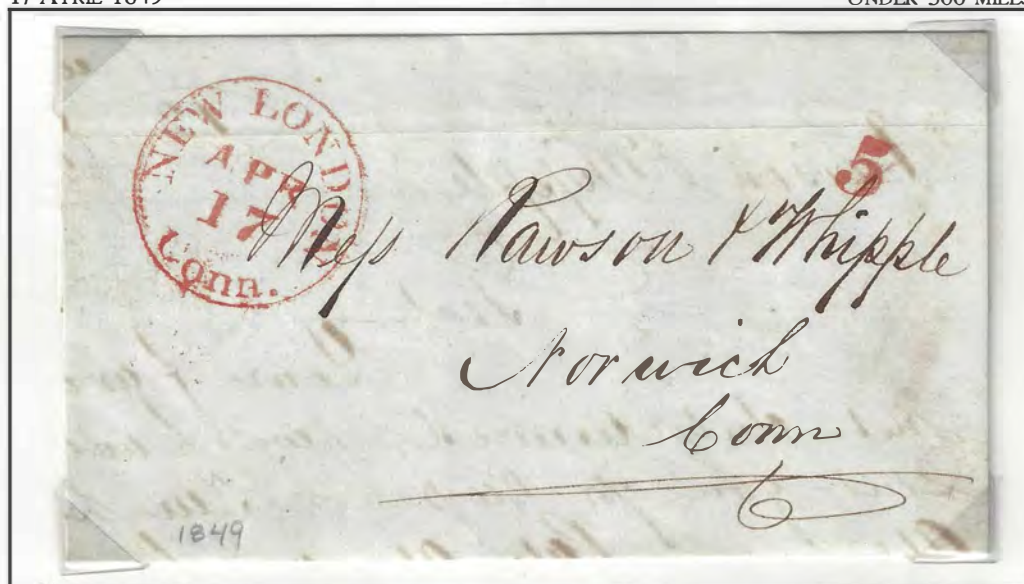 17 APRIL 1849
UNDER 300 MILES
NEW LONDON
APR
17
Conn.
5
Mess Rawson & Whipple
Norwich
Conn
1849